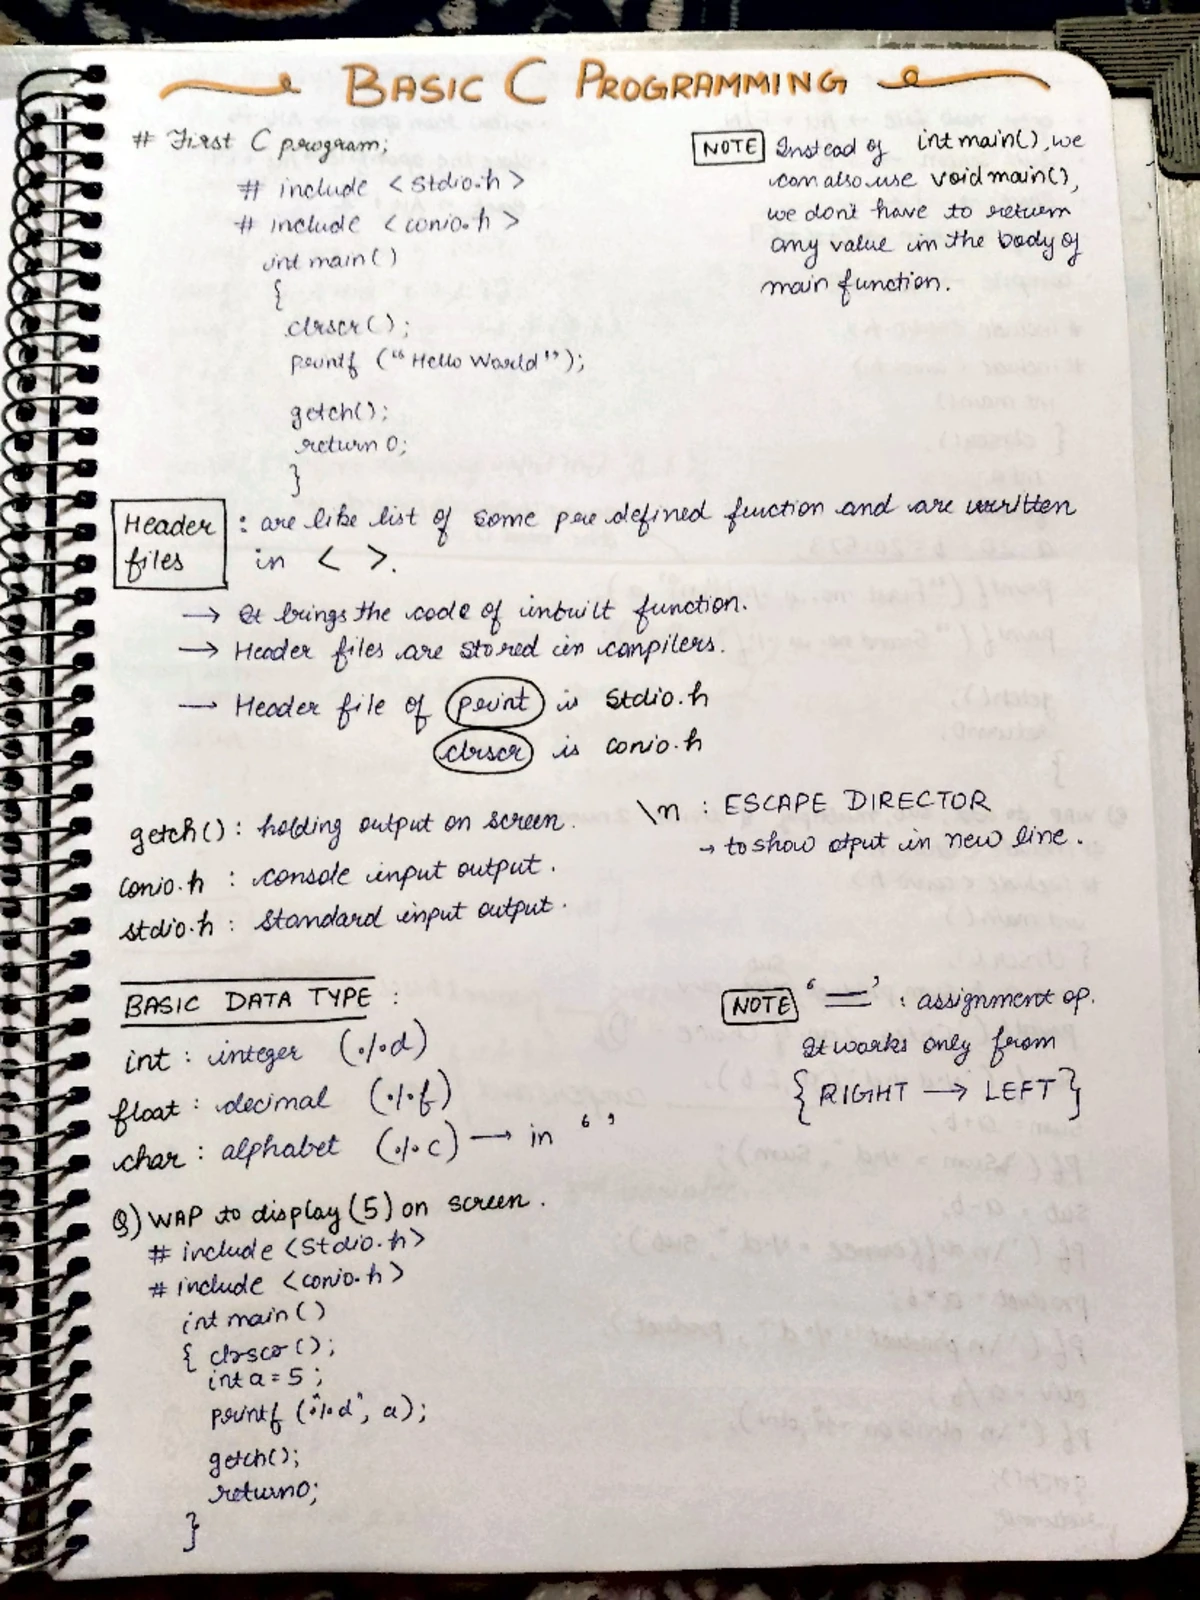 BASIC C PROGRAMMING
# First C program;
# include <Stdio.h>
# include <conio.h>
int main()
{
clrscr();
printf ("Hello World");
getch();
return 0;
}
NOTE Instead of int main(), we
can also use void main(),
we don't have to return
any value in the body of
main function.
Header files : are like list of some pre defined function and are written
in < >.
→ It brings the code of inbuilt function.
→ Header files are stored in compilers.
→ Header file of print is stdio.h
clrscr is conio.h
getch() : holding output on screen.
conio.h : console input output.
stdio.h : Standard input output.
\n : ESCAPE DIRECTOR
→ to show otput in new line.
BASIC DATA TYPE :
int : integer (%d)
float : decimal (%f)
char : alphabet (%c) → in ‘ ’
NOTE ‘=’ : assignment op.
It works only from
{RIGHT → LEFT}
Q) WAP to display (5) on screen.
# include <Stdio.h>
# include <conio.h>
int main()
{ clrscr();
int a = 5 ;
printf ("%d", a);
getch();
return 0;
}